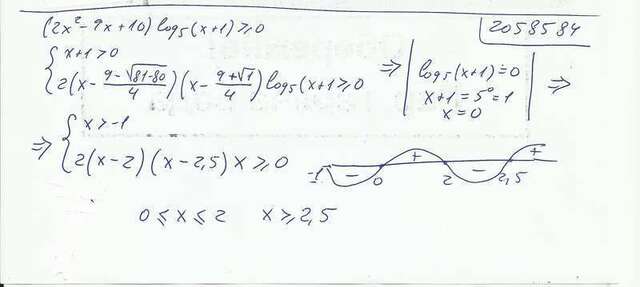 (2x² - 9x + 10) log₅(x+1) ≥ 0
2058584
{ x+1 > 0
2(x - (9-√(81-80))/4)(x - (9+√1)/4) log₅(x+1 ≥ 0
⇒ | log₅(x+1) = 0
x+1 = 5⁰ = 1
x = 0 | ⇒
⇒ { x > -1
2(x-2)(x-2,5) x ≥ 0
-1 - 0 + 2 - 2,5 +
0 ≤ x ≤ 2 x ≥ 2,5